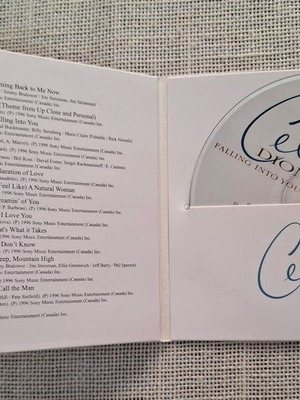 ming Back to Me Now
/ Jimmy Bralower / Jim Steinman, Jim Steinman)
usic Entertainment (Canada) Inc.
(Theme from Up Close and Personal)
ren) (P) 1996 Sony Music Entertainment (Canada) Inc.
lling Into You
ul Buckmaster, Billy Steinberg / Marie Claire D'Ubaldo / Rick Nowels)
c Entertainment (Canada) Inc.
d, A. Marvel) (P) 1996 Sony Music Entertainment (Canada) Inc.
rmen / Bill Ross / David Foster, Sergei Rachmaninoff / E. Carmen)
Entertainment (Canada) Inc.
laration of Love
(P) 1996 Sony Music Entertainment (Canada) Inc.
Feel Like) A Natural Woman
ic Entertainment (Canada) Inc.
reamin' of You
P. Barbeau) (P) 1996 Sony Music Entertainment (Canada) Inc.
I Love You
(P) 1996 Sony Music Entertainment (Canada) Inc.
at's What it Takes
ic Entertainment (Canada) Inc.
Don't Know
(P) 1996 Sony Music Entertainment (Canada) Inc.
eep, Mountain High
my Bralower / Jim Steinman, Ellie Greenwich / Jeff Barry / Phil Spector)
c Entertainment (Canada) Inc.
Call the Man
Hill / Pete Sinfield) (P) 1996 Sony Music Entertainment (Canada) Inc.
(P) 1996 Sony Music Entertainment (Canada) Inc.
sic Entertainment (Canada) Inc.
Cel
DION
FALLING INTO YOU
Ce